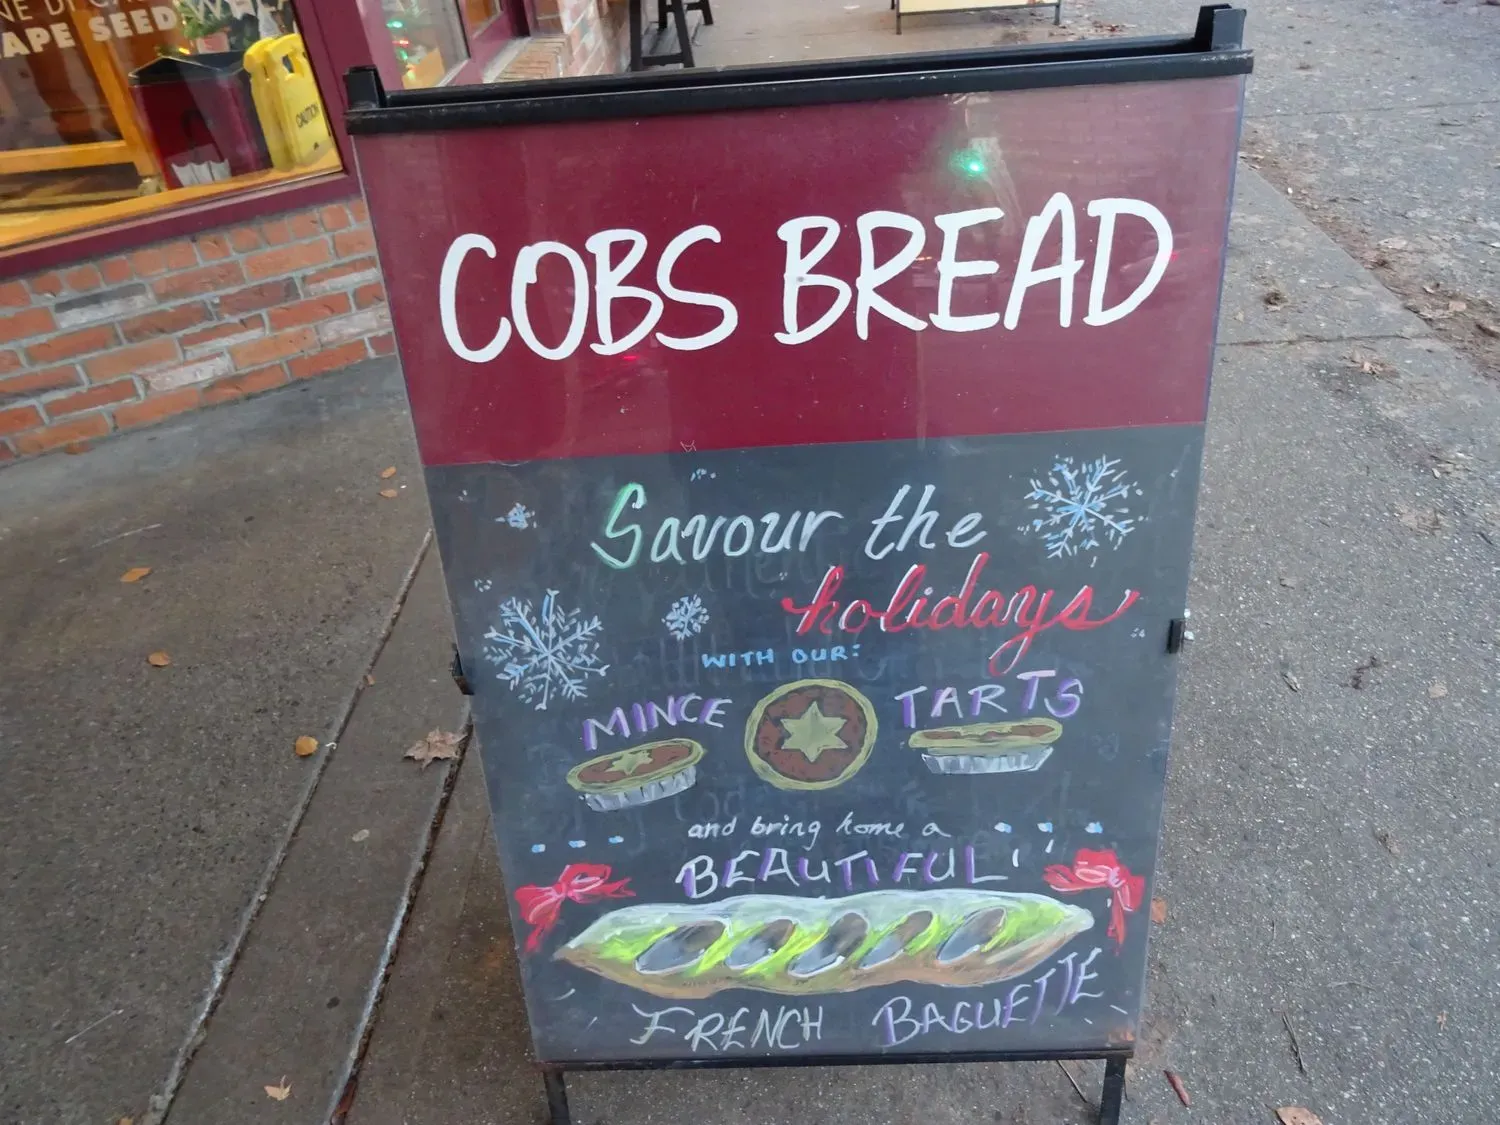 COBS BREAD
Savour the
holidays
WITH OUR:
MINCE TARTS
and bring home a
BEAUTIFUL
FRENCH BAGUETTE
APE SEED
CAUTION